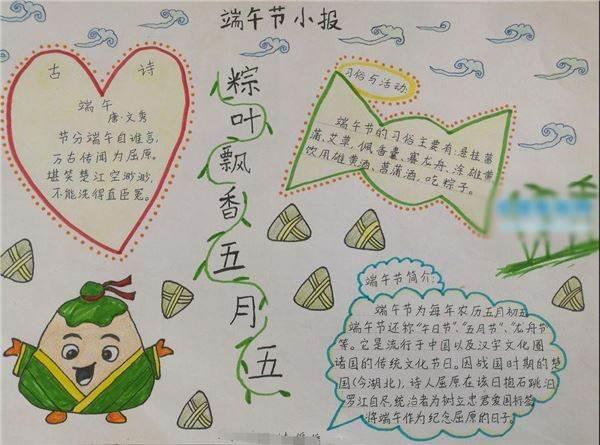 端午节小报
古 诗
端午
唐·文秀
节分端午自谁言,
万古传闻为屈原。
堪笑楚江空渺渺,
不能洗得直臣冤。
粽
叶
飘
香
五
月
五
习俗与活动
端午节的习俗主要有:悬挂菖
蒲、艾草,佩香囊,赛龙舟、涂雄黄
饮用雄黄酒、菖蒲酒,吃粽子。
端午节简介:
端午节为每年农历五月初五
端午节还称“午日节”、“五月节”、“龙舟节”
等。它是流行于中国以及汉字文化圈
诸国的传统文化节日。因战国时期的楚
国(今湖北),诗人屈原在该日抱石跳汨
罗江自尽,统治者为树立忠君爱国标签
将端午作为纪念屈原的日子。